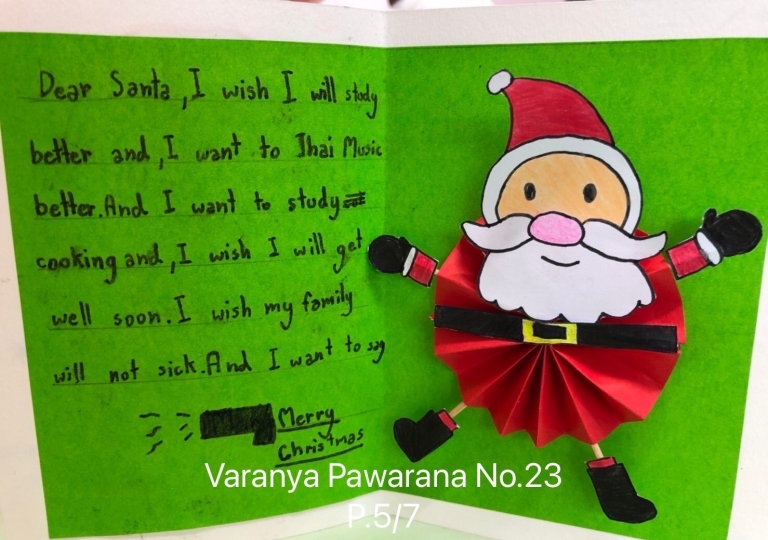 Dear Santa, I wish I will study
better and, I want to Thai Music
better. And I want to study
cooking and, I wish I will get
well soon. I wish my family
will not sick. And I want to say
Merry
Christmas
Varanya Pawarana No.23
P.5/7